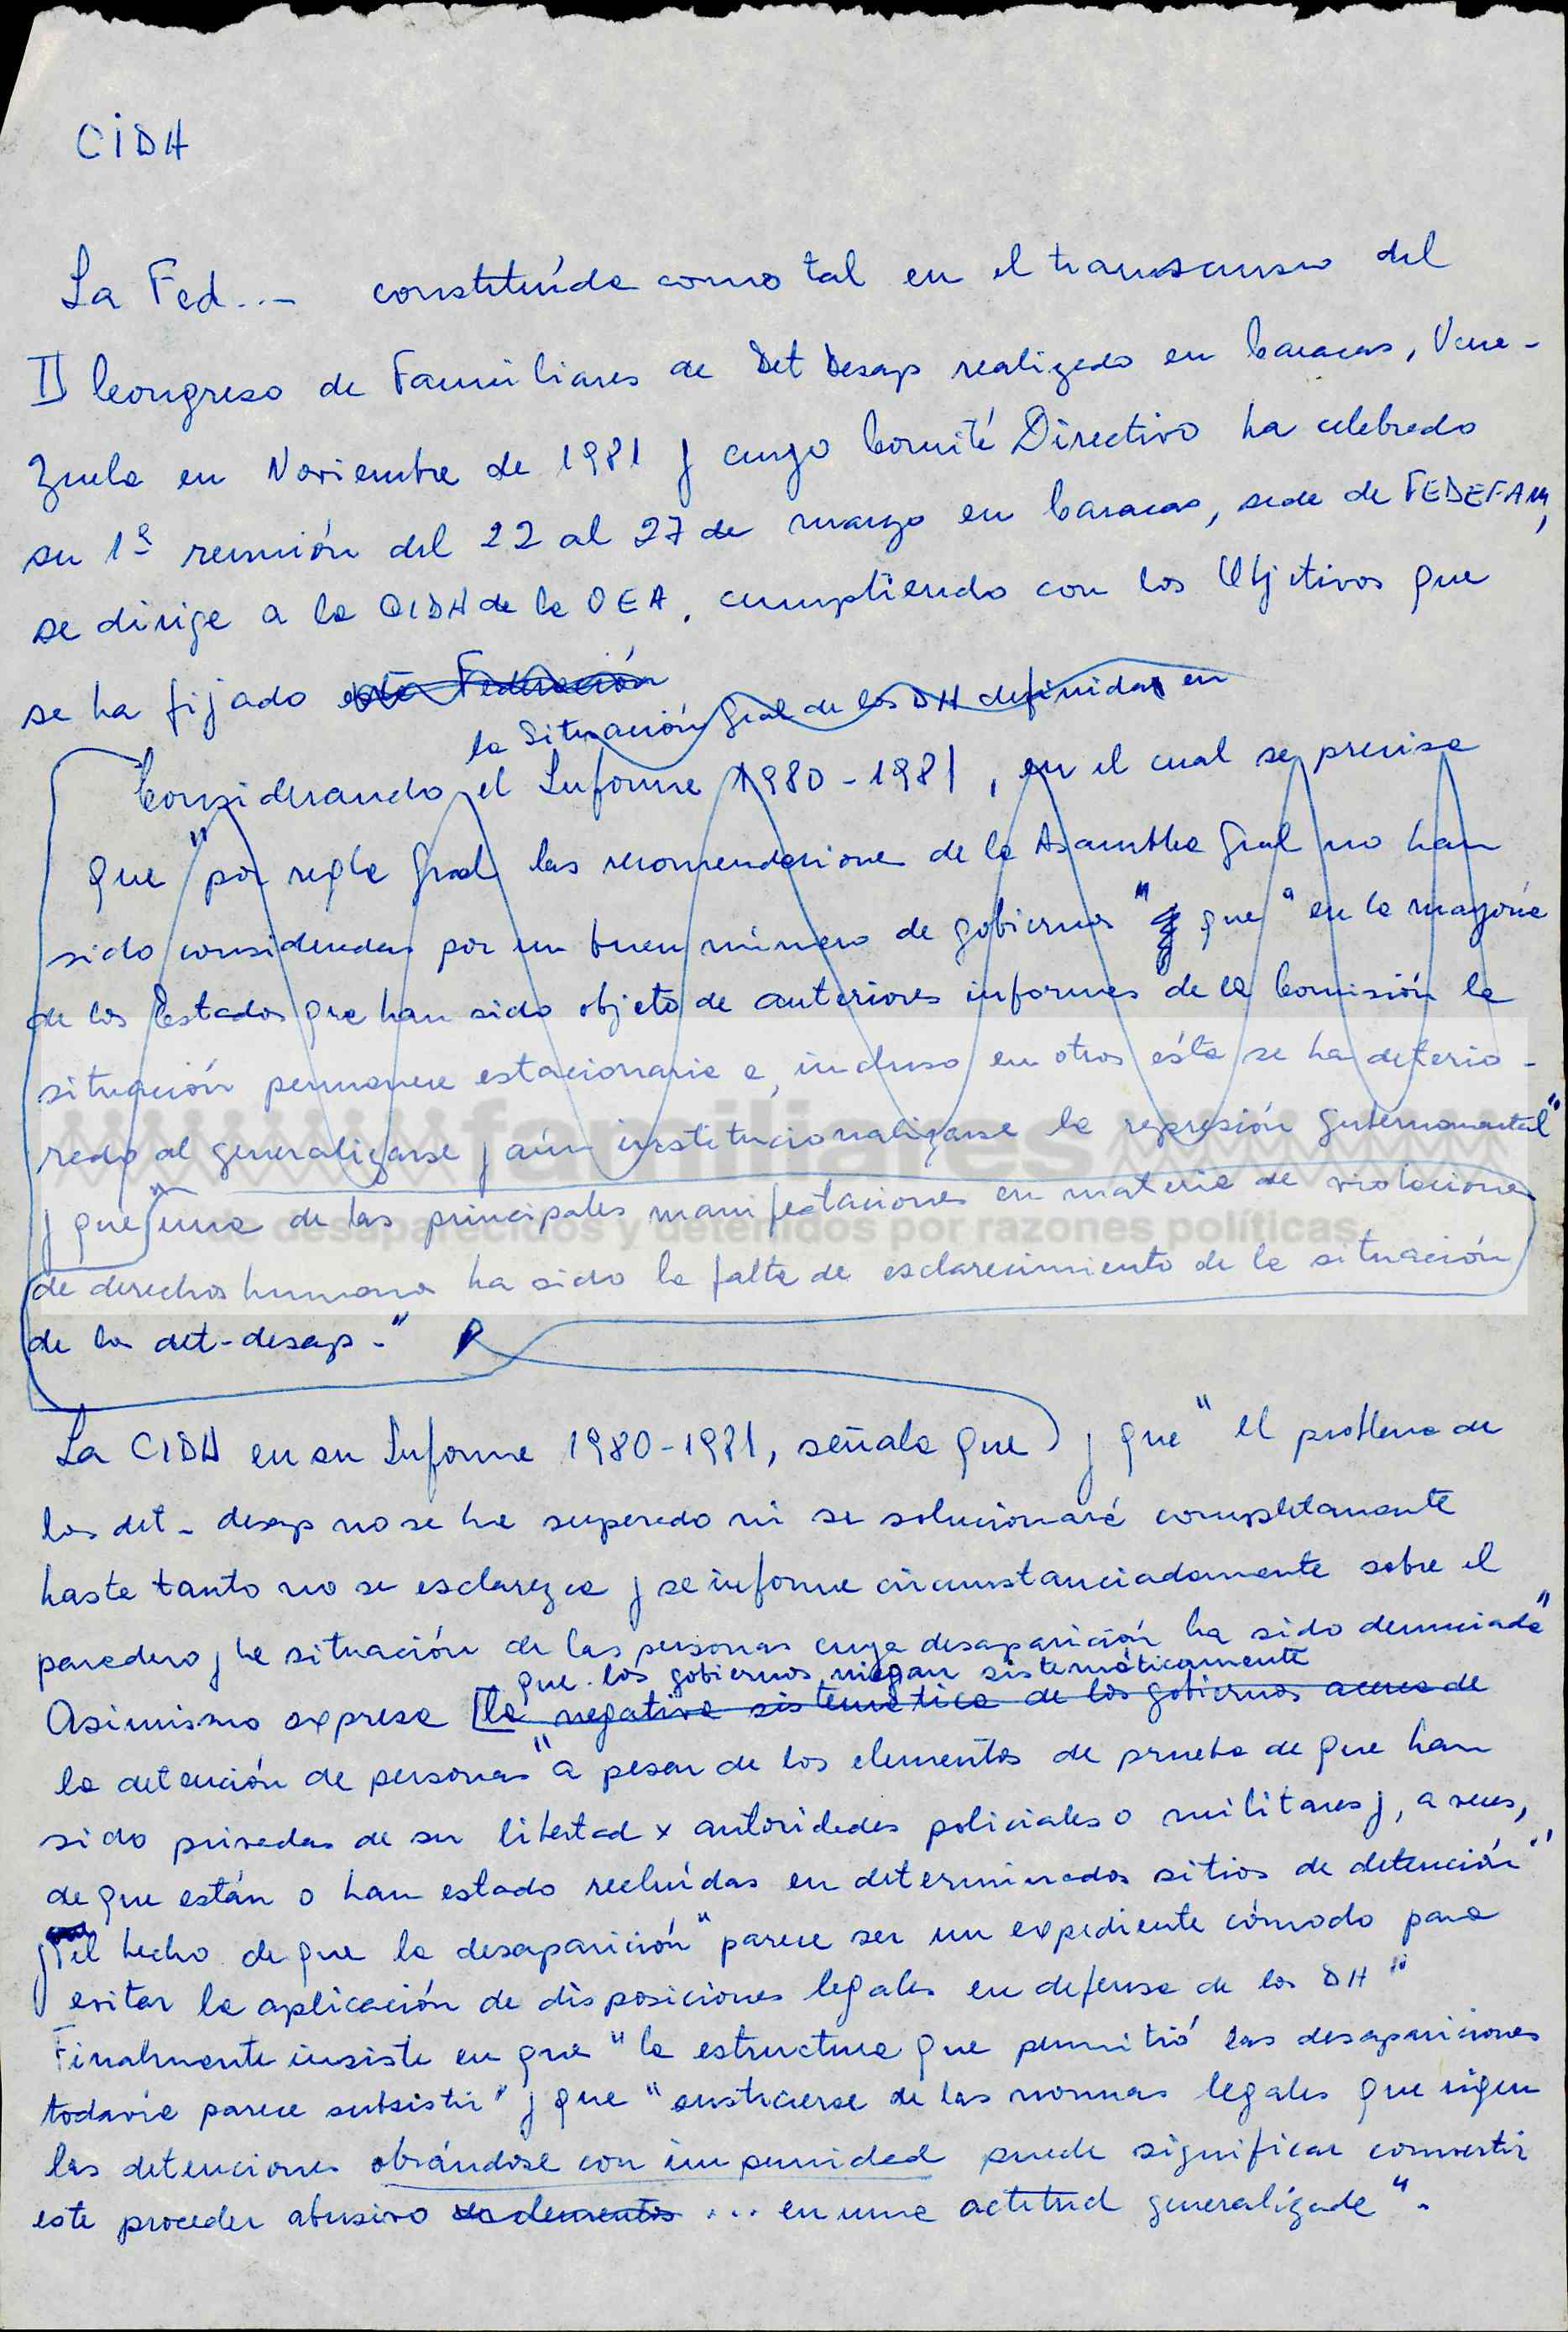 CIDH
La Fed... constituída como tal en el transcurso del
II Congreso de Familiares de Det Desap realizado en Caracas, Vene-
zuela en Noviembre de 1981 y cuyo Comité Directivo ha celebrado
su 1ª reunión del 22 al 27 de marzo en Caracas, sede de FEDEFAM,
se dirige a la CIDH de la OEA, cumpliendo con los Objetivos que
se ha fijado esta Federación
la Situación Gral de los DH definidas en
Considerando el Informe 1980-1981, en el cual se precisa
que "por regla gral las recomendaciones de la Asamblea Gral no han
sido consideradas por un buen número de gobiernos" y que "en la mayoría
de los Estados que han sido objeto de anteriores informes de la Comisión la
situación permanece estacionaria e, incluso en otros ésta se ha deterio-
rado al generalizarse y aún institucionalizarse la represión gubernamental"
familiares
y que "una de las principales manifestaciones en materia de violaciones
de desaparecidos y detenidos por razones políticas
de derechos humanos ha sido la falta de esclarecimiento de la situación
de los det-desap."
La CIDH en su Informe 1980-1981, señala que y que "el problema de
los det-desap no se ha superado ni se solucionará completamente
hasta tanto no se esclarezca y se informe circunstanciadamente sobre el
paradero y la situación de las personas cuya desaparición ha sido denunciada"
que los gobiernos niegan sistemáticamente
Asimismo expresa [la negativa sistemática de los gobiernos acerca de
la detención de personas "a pesar de los elementos de prueba de que han
sido privadas de su libertad x autoridades policiales o militares y, a veces,
de que están o han estado recluídas en determinados sitios de detención"
y el hecho de que la desaparición "parece ser un expediente cómodo para
evitar la aplicación de disposiciones legales en defensa de los DH"
Finalmente insiste en que "la estructura que permitió las desapariciones
todavía parece subsistir" y que "sustraerse de las normas legales que rigen
las detenciones obrándose con impunidad puede significar convertir
este proceder abusivo ... en una actitud generalizada".